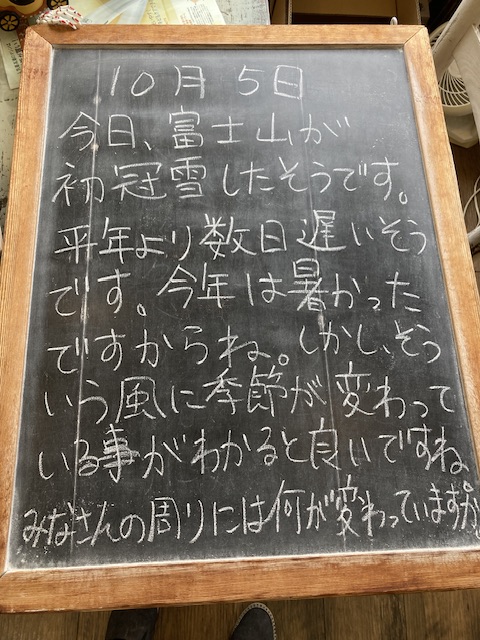 10月5日
今日、富士山が
初冠雪したそうです。
平年より数日遅いそう
です。今年は暑かった
ですからね。しかし、そう
いう風に季節が変わって
いる事がわかると良いですね
みなさんの周りには何が変わっていますか。